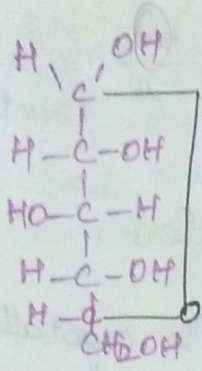 H OH
C
H-C-OH
HO-C-H
H-C-OH
H-C-O
CH2OH